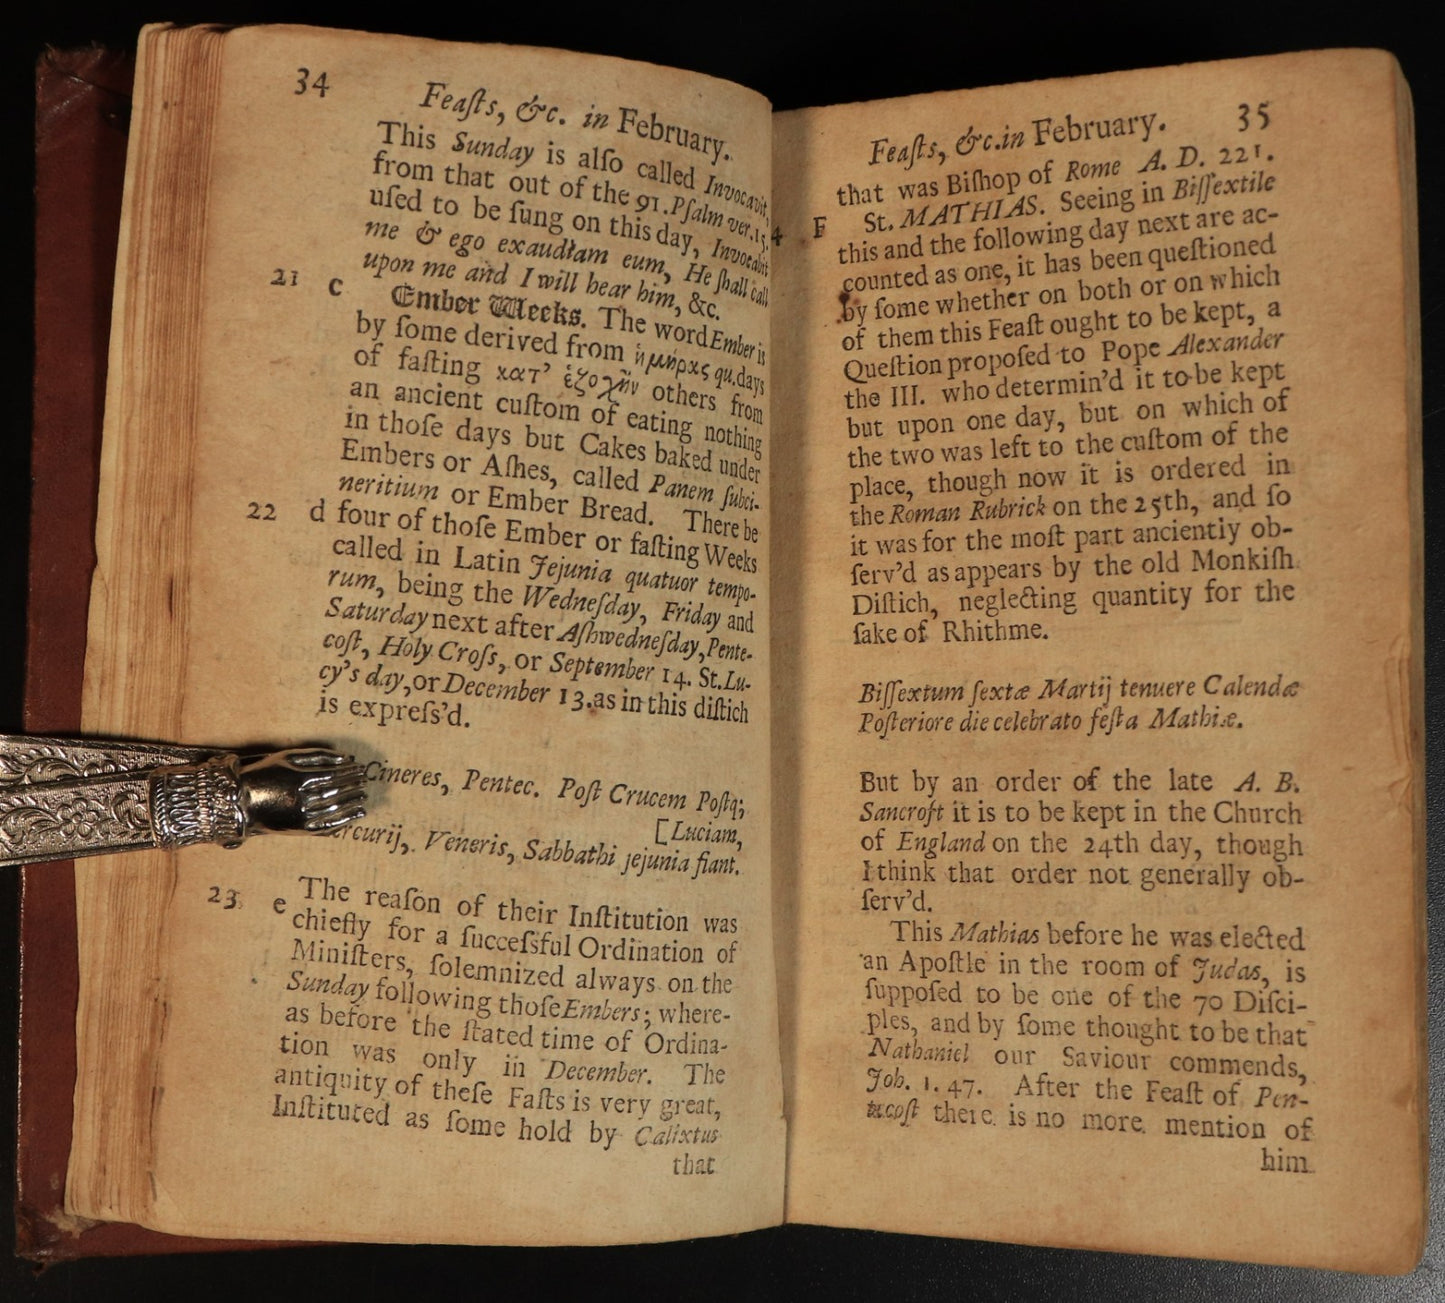 34
Feaſts, &c. in February.
This Sunday is alſo called Invocavit,
from that out of the 91. Pſalm ver. 15.
uſed to be ſung on this day, Invocabit
me & ego exaudiam eum, He ſhall call
upon me and I will hear him, &c.
21 c Ember Weeks. The word Ember is
by ſome derived from ἡμέρας qu. days
of faſting κατ' ἐξοχὴν others from
an ancient cuſtom of eating nothing
in thoſe days but Cakes baked under
Embers or Aſhes, called Panem ſubci-
neritium or Ember Bread. There be
22 d four of thoſe Ember or faſting Weeks
called in Latin Jejunia quatuor tempo-
rum, being the Wedneſday, Friday and
Saturday next after Aſhwedneſday, Pente-
coſt, Holy Croſs, or September 14. St. Lu-
cy's day, or December 13. as in this diſtich
is expreſs'd.
Cineres, Pentec. Poſt Crucem Poſtq;
[Luciam,
rcurij, Veneris, Sabbathi jejunia fiant.
23 e The reaſon of their Inſtitution was
chiefly for a ſucceſsful Ordination of
Miniſters, ſolemnized always on the
Sunday following thoſe Embers; where-
as before the ſtated time of Ordina-
tion was only in December. The
antiquity of theſe Faſts is very great,
Inſtituted as ſome hold by Calixtus
that
Feaſts, &c. in February. 35
that was Biſhop of Rome A. D. 221.
4 F St. MATHIAS. Seeing in Biſſextile
this and the following day next are ac-
counted as one, it has been queſtioned
by ſome whether on both or on which
of them this Feaſt ought to be kept, a
Queſtion propoſed to Pope Alexander
the III. who determin'd it to be kept
but upon one day, but on which of
the two was left to the cuſtom of the
place, though now it is ordered in
the Roman Rubrick on the 25th, and ſo
it was for the moſt part anciently ob-
ſerv'd as appears by the old Monkiſh
Diſtich, neglecting quantity for the
ſake of Rhithme.
Biſſextum ſextæ Martij tenuere Calendæ
Poſteriore die celebrato feſta Mathiæ.
But by an order of the late A. B.
Sancroft it is to be kept in the Church
of England on the 24th day, though
I think that order not generally ob-
ſerv'd.
This Mathias before he was elected
an Apoſtle in the room of Judas, is
ſuppoſed to be one of the 70 Diſci-
ples, and by ſome thought to be that
Nathaniel our Saviour commends,
Joh. 1. 47. After the Feaſt of Pen-
tecoſt there is no more mention of
him